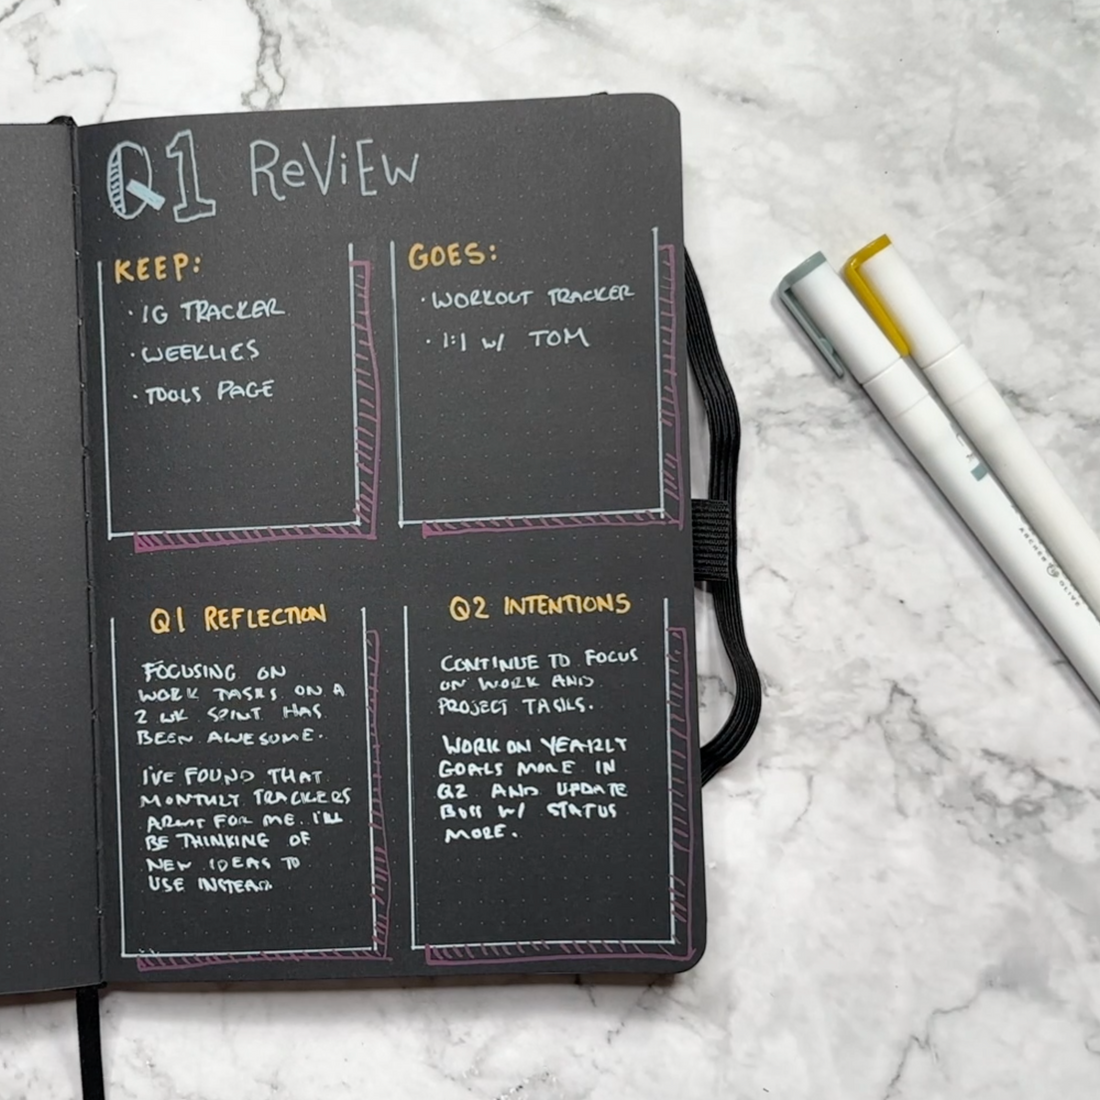 Q1 ReViEW
KEEP:
· IG TRACKER
· WEEKLIES
· TOOLS PAGE
GOES:
· WORKOUT TRACKER
· 1:1 W/ TOM
Q1 REFLECTION
FOCUSING ON
WORK TASKS ON A
2 WK SPINT HAS
BEEN AWESOME.
I'VE FOUND THAT
MONTHLY TRACKERS
ARENT FOR ME. I'LL
BE THINKING OF
NEW IDEAS TO
USE INSTEAD
Q2 INTENTIONS
CONTINUE TO FOCUS
ON WORK AND
PROJECT TASKS.
WORK ON YEARLY
GOALS MORE IN
Q2 AND UPDATE
W/ STATUS
MORE.
ARCHER OLIVE